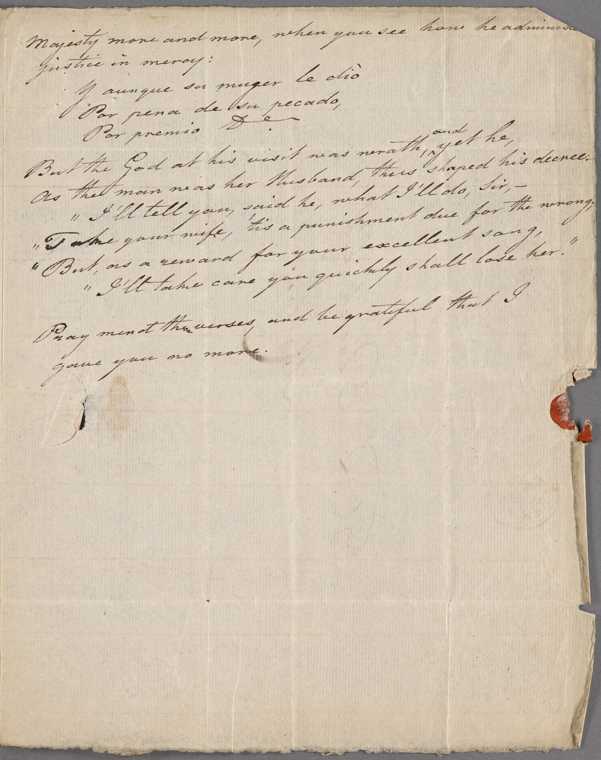 Majesty more and more, when you see how he administ
justice in mercy:
Y aunque su muger le diò
Por pena de su pecado,
Por premio De
But the God at his visit was wrath, and yet he,
As the man was her husband, thus shaped his decree:
"I'll tell you, said he, what I'll do, Sir,—
"Take your wife, 'tis a punishment due for the wrong,
"But, as a reward for your excellent song,
"I'll take care you quickly shall lose her."
Pray mend the verses, and be grateful that I
gave you no more.